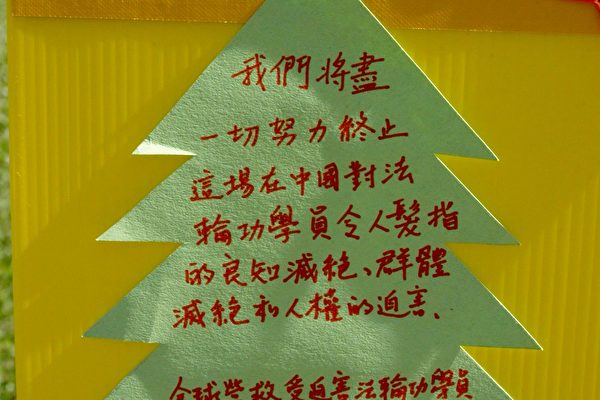 我們將盡
一切努力終止
這場在中國對法
輪功學員令人髮指
的良知滅絕、群體
滅絕和人權的迫害、
全球營救受迫害法輪功學員